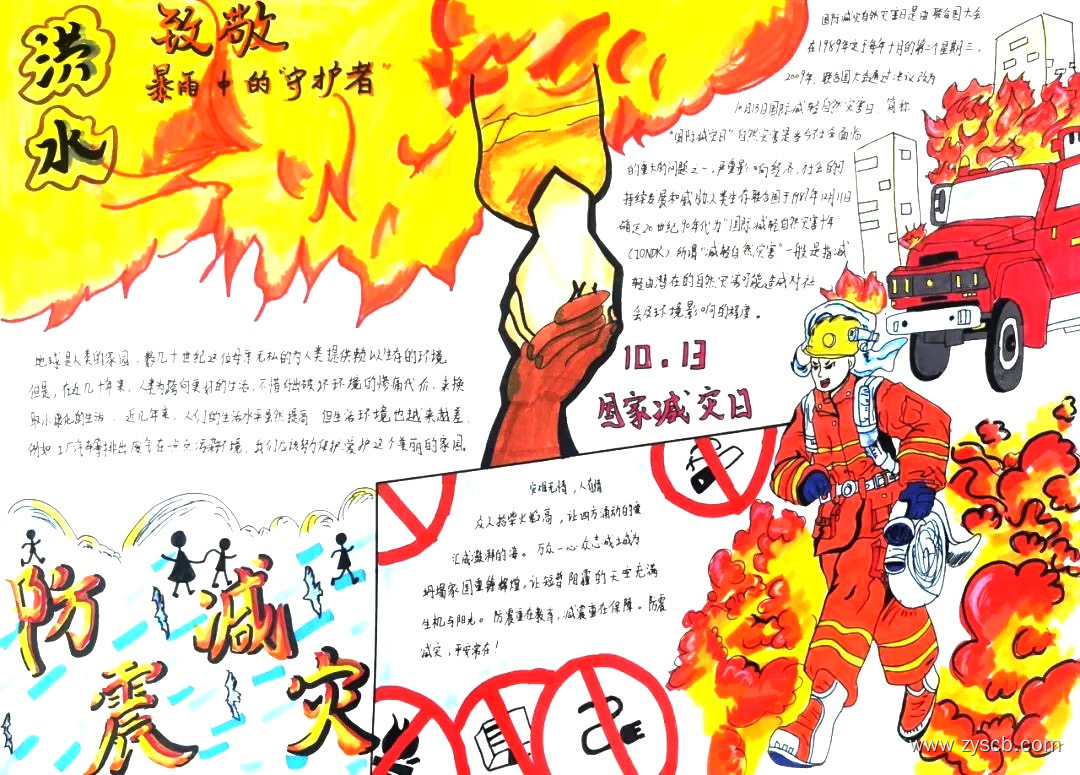 洪水
致敬
暴雨中的“守护者”
国际减灾自然灾害日是由联合国大会
在1989年定于每年十月的第二个星期三，
2009年，联合国大会通过决议改为
10月13日国际减轻自然灾害日 简称
“国际减灾日”自然灾害是当今社会面临
的重大的问题之一，严重影响经济、社会的可
持续发展和威胁人类生存联合国于1987年12月11日
确定20世纪90年代为“国际减轻自然灾害十年”
(IONDR)所谓“减轻自然灾害”一般是指减
轻由潜在的自然灾害可能造成对社
会及环境影响的程度。
10.13
国家减灾日
地球是人类的家园，数几十世纪这位母亲无私的为人类提供赖以生存的环境
但是，在近几十年来，人类为踏向更好的生活，不惜付出破坏环境的惨痛代价，来换
取小康化的生活，近几年来，人们的生活水平虽然提高 但生活环境也越来越差，
例如工厂汽车等排出废气在一点点污染环境，我们应该努力保护爱护这个美丽的家园。
灾难无情，人有情
众人拾柴火焰高，让四方涌动的爱
汇成澎湃的海。万众一心众志成城为
坍塌家园重铸辉煌，让短暂阴霾的天空充满
生机与阳光。防震重在教育，减震重在保障。防震
减灾，平安常在！
防减
震灾
www.zyscb.com